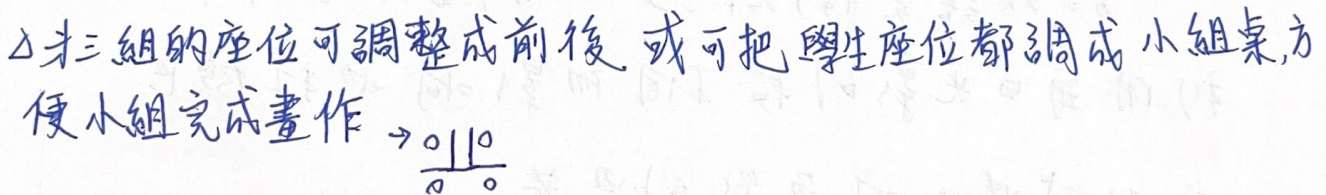 △第三組的座位可調整成前後,或可把學生座位都調成小組桌,方
便小組完成畫作→